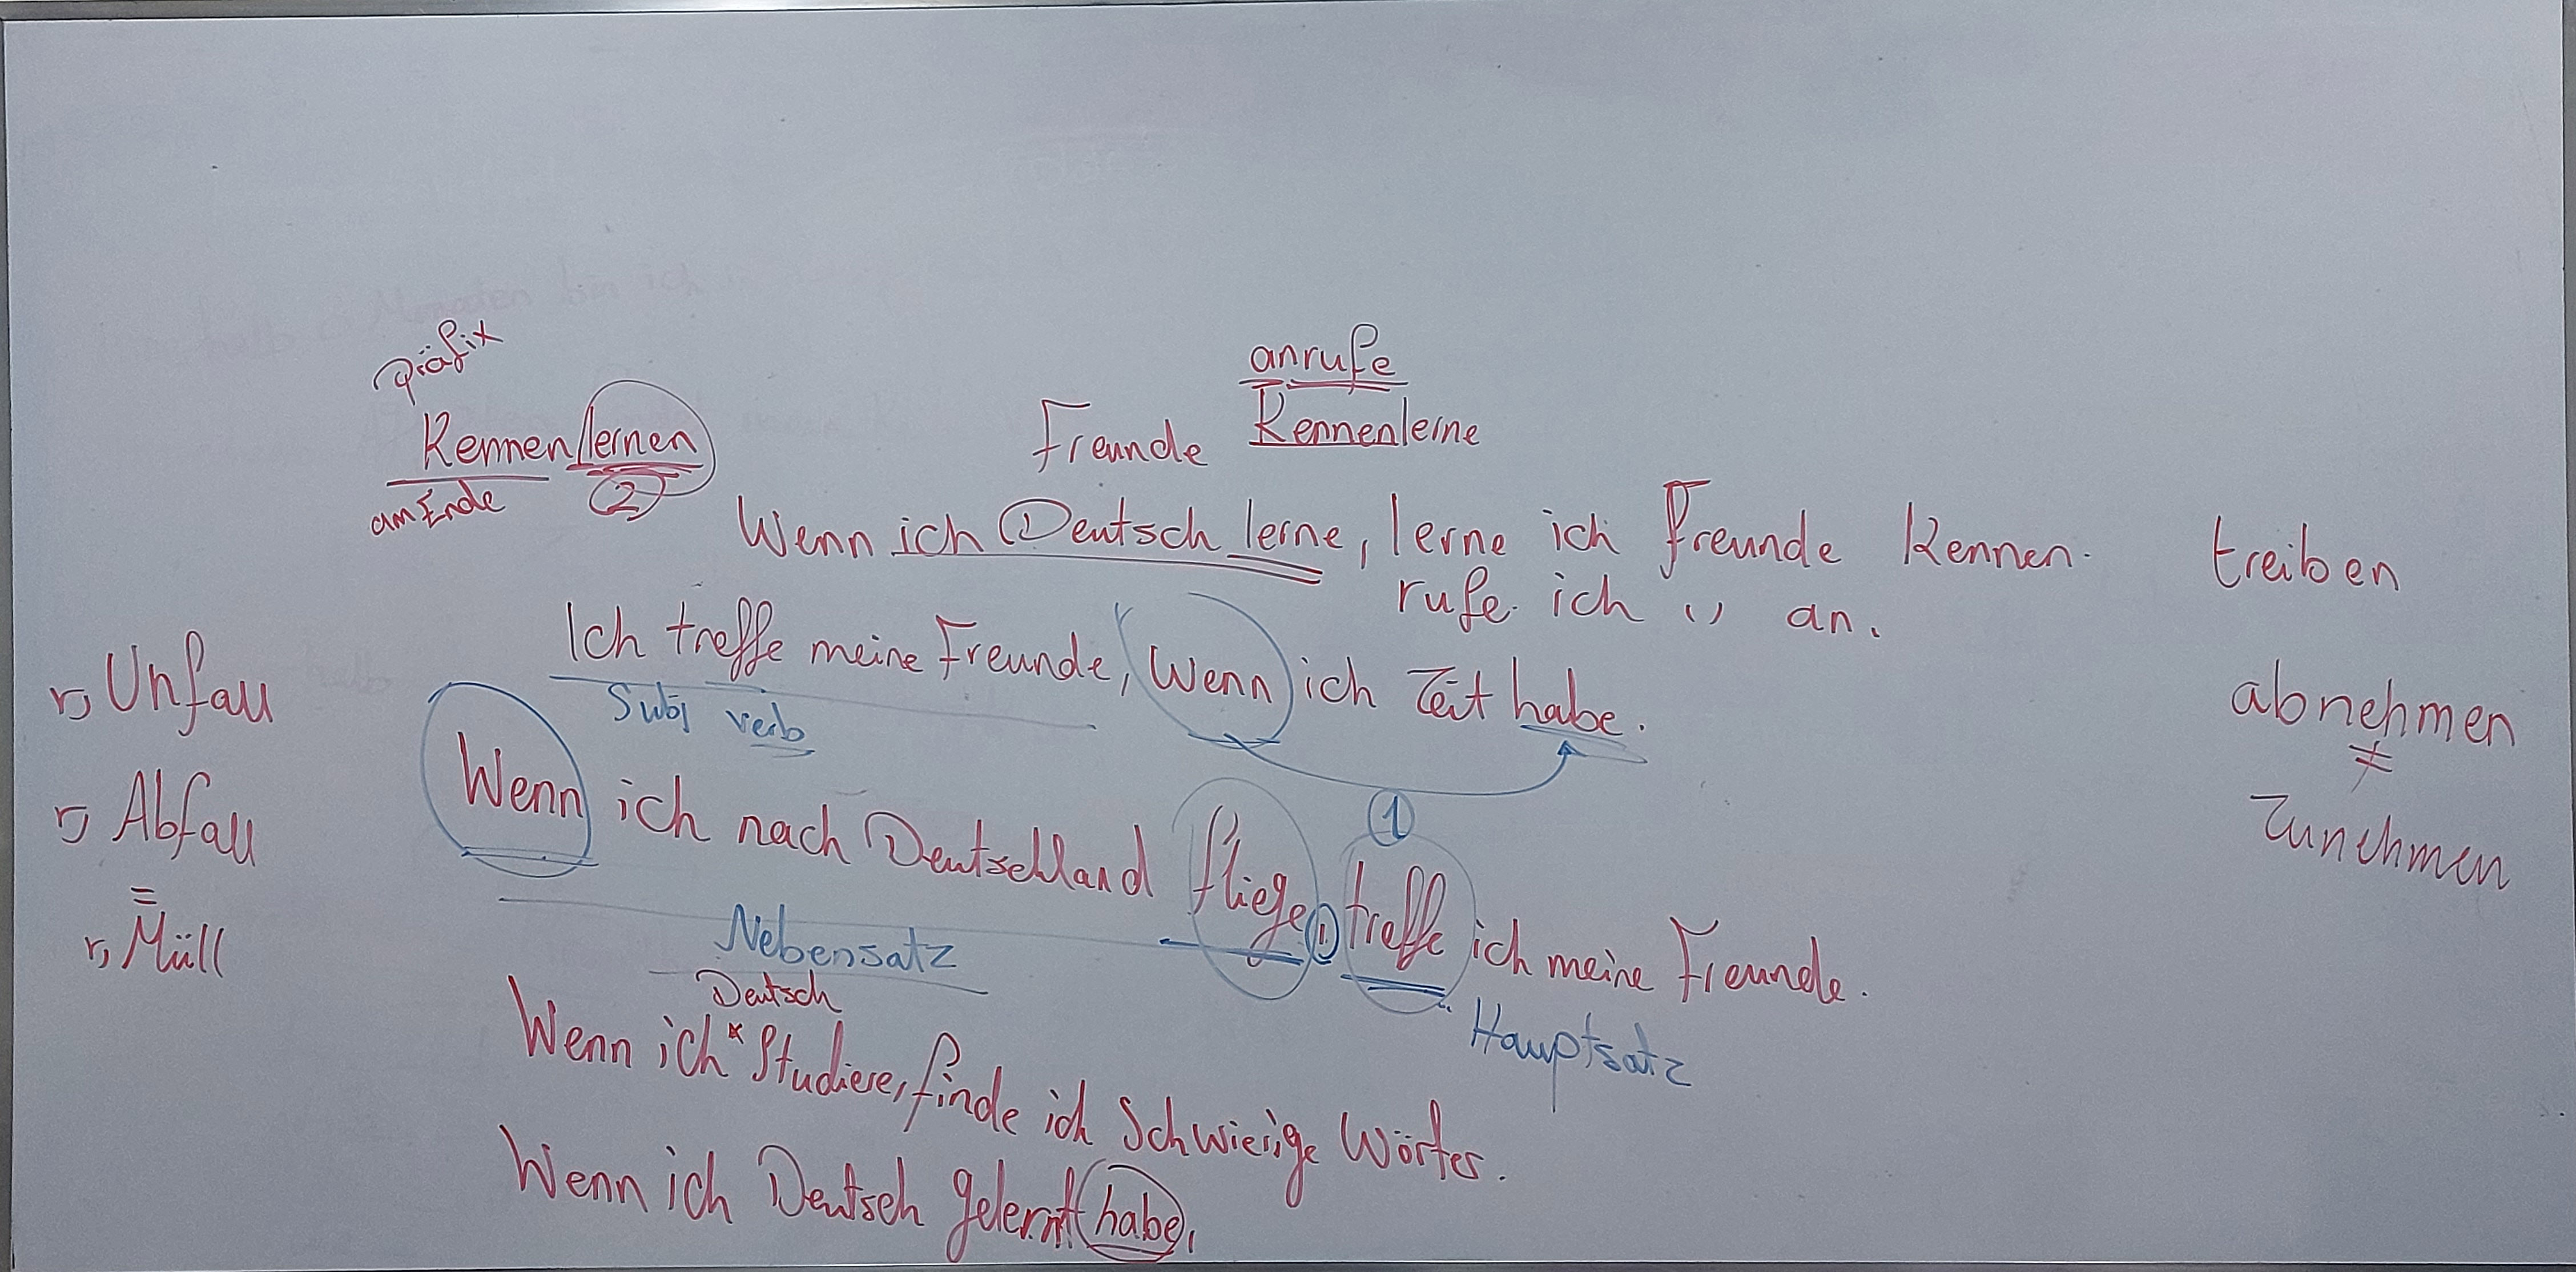 Präfix
Kennen/lernen
am Ende ②
anrufe
Freunde Kennenlerne
Wenn ich Deutsch lerne, lerne ich Freunde Kennen.
rufe ich '' an.
Ich treffe meine Freunde, Wenn ich Zeit habe.
Subj verb
Wenn ich nach Deutschland fliege, treffe ich meine Freunde.
①
Nebensatz
Hauptsatz
Deutsch
Wenn ich * Studiere, finde ich Schwierige Wörter.
Wenn ich Deutsch gelernt habe,
r, Unfall
r, Abfall
=
r, Müll
treiben
abnehmen
≠
Zunehmen